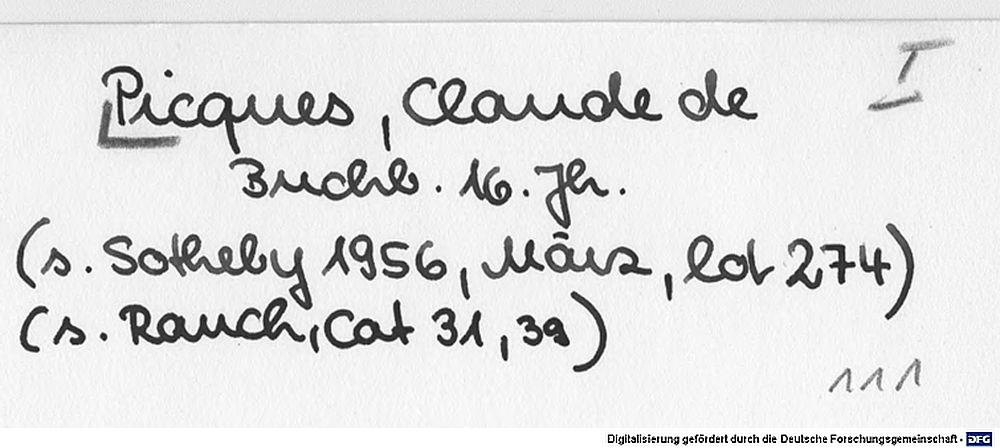 I
Picques, Claude de
Buchb. 16. Jh.
(s. Sotheby 1956, März, lot 274)
(s. Rauch, Cat 31, 39)
111
Digitalisierung gefördert durch die Deutsche Forschungsgemeinschaft - DFG